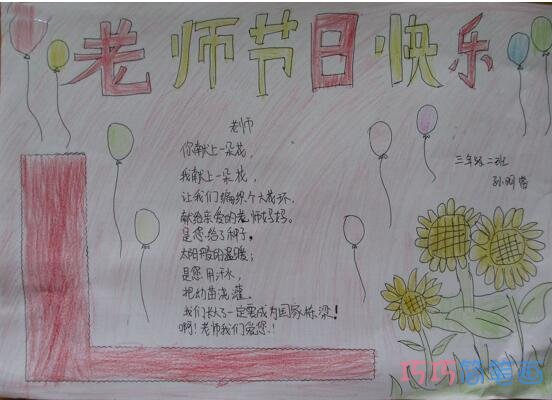 老师节日快乐
老师
你献上一朵花,
我献上一朵花,
让我们编织个大花环,
献给亲爱的老师妈妈。
是您给了种子,
太阳般的温暖;
是您用汗水,
把幼苗浇灌。
我们长大了一定要成为国家栋梁!
啊!老师我们爱您!
三年级二班